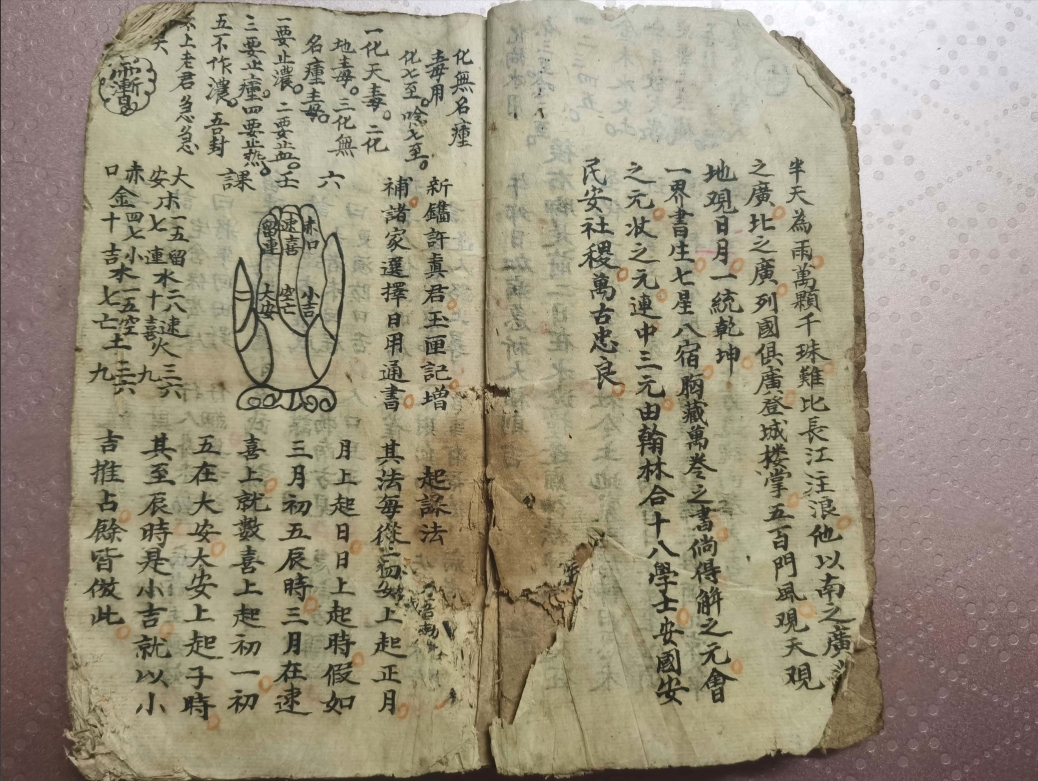 半天為雨萬顆千珠難比長江注浪他以南之廣
之廣比之廣列國俱廣登城楼掌五百門風观天观
地观日月一統乾坤
一界書生七星八宿胸藏萬卷之書倘得解之元會
之元状之元連中三元由翰林合十八學士安國安
民安社稷萬古忠良
化無名瘇
毒用
化七至。唸七至。
一化天毒。二化
地毒。三化無
名瘇毒。
一要止濃。二要止血。
三要止瘇四要止热。
五不作濃。吾封
太上老君急急
新鐫許真君玉匣記增
補諸家選擇日用通書
六
壬
課
赤口
速喜
留連
小吉
空亡
大安
大
安木一五
七
留
連水二八
十
速
喜火三六
九
赤
口金四七
十
小
吉水一五
七
空
亡土三六
九
起課法
其法每從上起正月
月上起日日上起時假如
三月初五辰時三月在速
喜上就數喜上起初一初
五在大安大安上起子時
其至辰時是小吉就以小
吉推占餘皆倣此